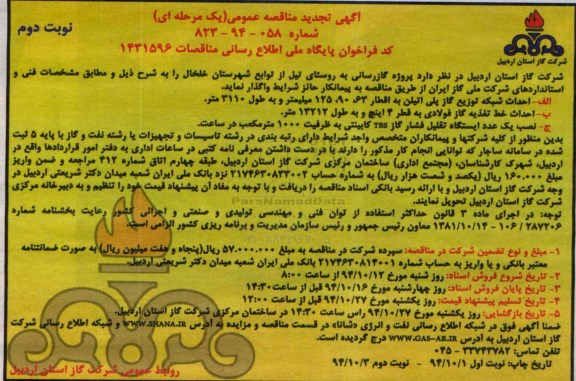 آگهی تجدید مناقصه عمومی(یک مرحله ای)
نوبت دوم
شماره ۰۵۸ - ۹۴ - ۸۲۳
کد فراخوان پایگاه ملی اطلاع رسانی مناقصات ۱۴۳۱۵۹۶
شرکت گاز استان اردبیل
شرکت گاز استان اردبیل در نظر دارد پروژه گازرسانی به روستای تیل از توابع شهرستان خلخال را به شرح ذیل و مطابق مشخصات فنی و
استانداردهای شرکت ملی گاز ایران از طریق مناقصه به پیمانکار حائز شرایط واگذار نماید.
الف- احداث شبکه توزیع گاز پلی اتیلن به اقطار ۶۳، ۹۰، ۱۲۵ میلیمتر و به طول ۳۱۱۰ متر.
ب- احداث خط تغذیه گاز فولادی به قطر ۴ اینچ و به طول ۱۳۲۱۲ متر.
ج- نصب یک عدد ایستگاه تقلیل فشار گاز TBS کابینتی به ظرفیت ۱۰۰۰ مترمکعب در ساعت.
بدین منظور از کلیه شرکتها و پیمانکاران متخصص واجد شرایط دارای رتبه بندی در رشته تاسیسات و تجهیزات یا رشته نفت و گاز با پایه ۵ ثبت
شده در سامانه ساجار که توانایی انجام کار مذکور را دارند با در دست داشتن معرفی نامه کتبی در ساعات اداری به دفتر امور قراردادها واقع در
اردبیل، شهرک کارشناسان، (مجتمع اداری) ساختمان مرکزی شرکت گاز استان اردبیل، طبقه چهارم اتاق شماره ۴۱۲ مراجعه و ضمن واریز
مبلغ ۱۶۰.۰۰۰ ریال (یکصد و شصت هزار ریال) به شماره حساب ۲۱۷۴۶۳۰۸۳۳۰۰۲ نزد بانک ملی ایران شعبه میدان دکتر شریعتی اردبیل در
وجه شرکت گاز استان اردبیل و با ارائه رسید بانکی اسناد مناقصه را دریافت و با توجه به مفاد آن پیشنهاد قیمت خود را تنظیم و به دبیرخانه مرکزی
شرکت گاز استان اردبیل تحویل نمایند.
ParsNamadData
توجه: در اجرای ماده ۳ قانون حداکثر استفاده از توان فنی و مهندسی تولیدی و صنعتی و اجرائی کشور رعایت بخشنامه شماره
۲۸۷۲۰۶ / ۱۰۶ - ۱۳۸۱/۱۰/۱۴ معاون رئیس جمهور و رئیس سازمان مدیریت و برنامه ریزی کشور الزامی است.
۱- مبلغ و نوع تضمین شرکت در مناقصه: سپرده شرکت در مناقصه به مبلغ ۵۷.۰۰۰.۰۰۰ ریال(پنجاه و هفت میلیون ریال) به صورت ضمانتنامه
معتبر بانکی و یا واریز به حساب شماره ۲۱۷۴۶۳۰۸۱۴۰۰۱ بانک ملی ایران شعبه میدان دکتر شریعتی اردبیل.
۲- تاریخ شروع فروش اسناد: روز شنبه مورخ ۹۴/۱۰/۱۲ از ساعت ۸:۰۰
۳- تاریخ پایان فروش اسناد: روز چهارشنبه مورخ ۹۴/۱۰/۱۶ قبل از ساعت ۱۴:۳۰
۴- تاریخ تسلیم پیشنهاد قیمت: روز یکشنبه مورخ ۹۴/۱۰/۲۷ قبل از ساعت ۱۲:۰۰
۵- تاریخ بازگشایی: روز یکشنبه مورخ ۹۴/۱۰/۲۷ راس ساعت ۱۴:۳۰ در ساختمان مرکزی شرکت گاز استان اردبیل.
ضمنا آگهی فوق در شبکه اطلاع رسانی نفت و انرژی «شانا» در قسمت مناقصه و مزایده به آدرس WWW.SHANA.IR و شبکه اطلاع رسانی شرکت
گاز استان اردبیل به آدرس WWW.GAS-AR.IR درج گردیده است.
تلفن تماس: ۳۳۷۴۳۷۸۲ - ۰۴۵
تاریخ چاپ: نوبت اول ۹۴/۱۰/۱ - نوبت دوم ۹۴/۱۰/۳
روابط عمومی شرکت گاز استان اردبیل